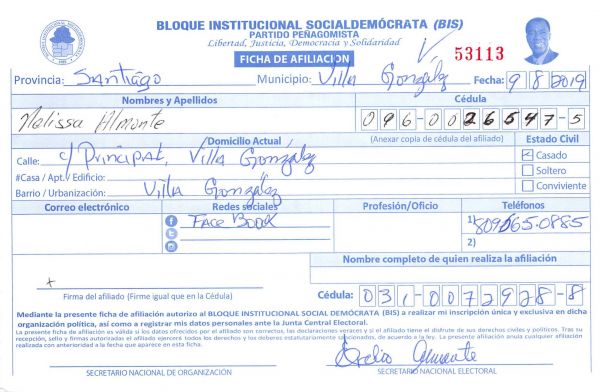 BLOQUE INSTITUCIONAL SOCIALDEMÓCRATA (BIS)
PARTIDO PEÑAGOMISTA
Libertad, Justicia, Democracia y Solidaridad
FICHA DE AFILIACIÓN
53113
Provincia: Santiago Municipio: Villa González Fecha: 9/8/2019
Nombres y Apellidos Cédula
Melissa Almonte 096-0026547-5
Domicilio Actual (Anexar copia de cédula del afiliado) Estado Civil
Calle: c/ Principal, Villa González Casado
#Casa / Apt./ Edificio: Soltero
Barrio / Urbanización: Villa González Conviviente
Correo electrónico Redes sociales Profesión/Oficio Teléfonos
Face Book 1)
2)
Nombre completo de quien realiza la afiliación
x
Firma del afiliado (Firme igual que en la Cédula) Cédula: 031-0072928-8
Mediante la presente ficha de afiliación autorizo al BLOQUE INSTITUCIONAL SOCIAL DEMÓCRATA (BIS) a realizar mi inscripción única y exclusiva en dicha
organización política, así como a registrar mis datos personales ante la Junta Central Electoral.
La presente ficha de afiliación es válida si los datos ofrecidos por el afiliado son correctos, las declaraciones veraces y si el afiliado tiene el disfrute de sus derechos civiles y políticos. Tras su
recepción, sello y firmas autorizadas el afiliado ejercerá todos los derechos y los deberes estatutariamente sancionados, de acuerdo a la ley. La presente afiliación anula cualquier afiliación
realizada con anterioridad a la fecha que aparece en esta ficha.
Almonte
SECRETARIO NACIONAL DE ORGANIZACIÓN SECRETARIO NACIONAL ELECTORAL